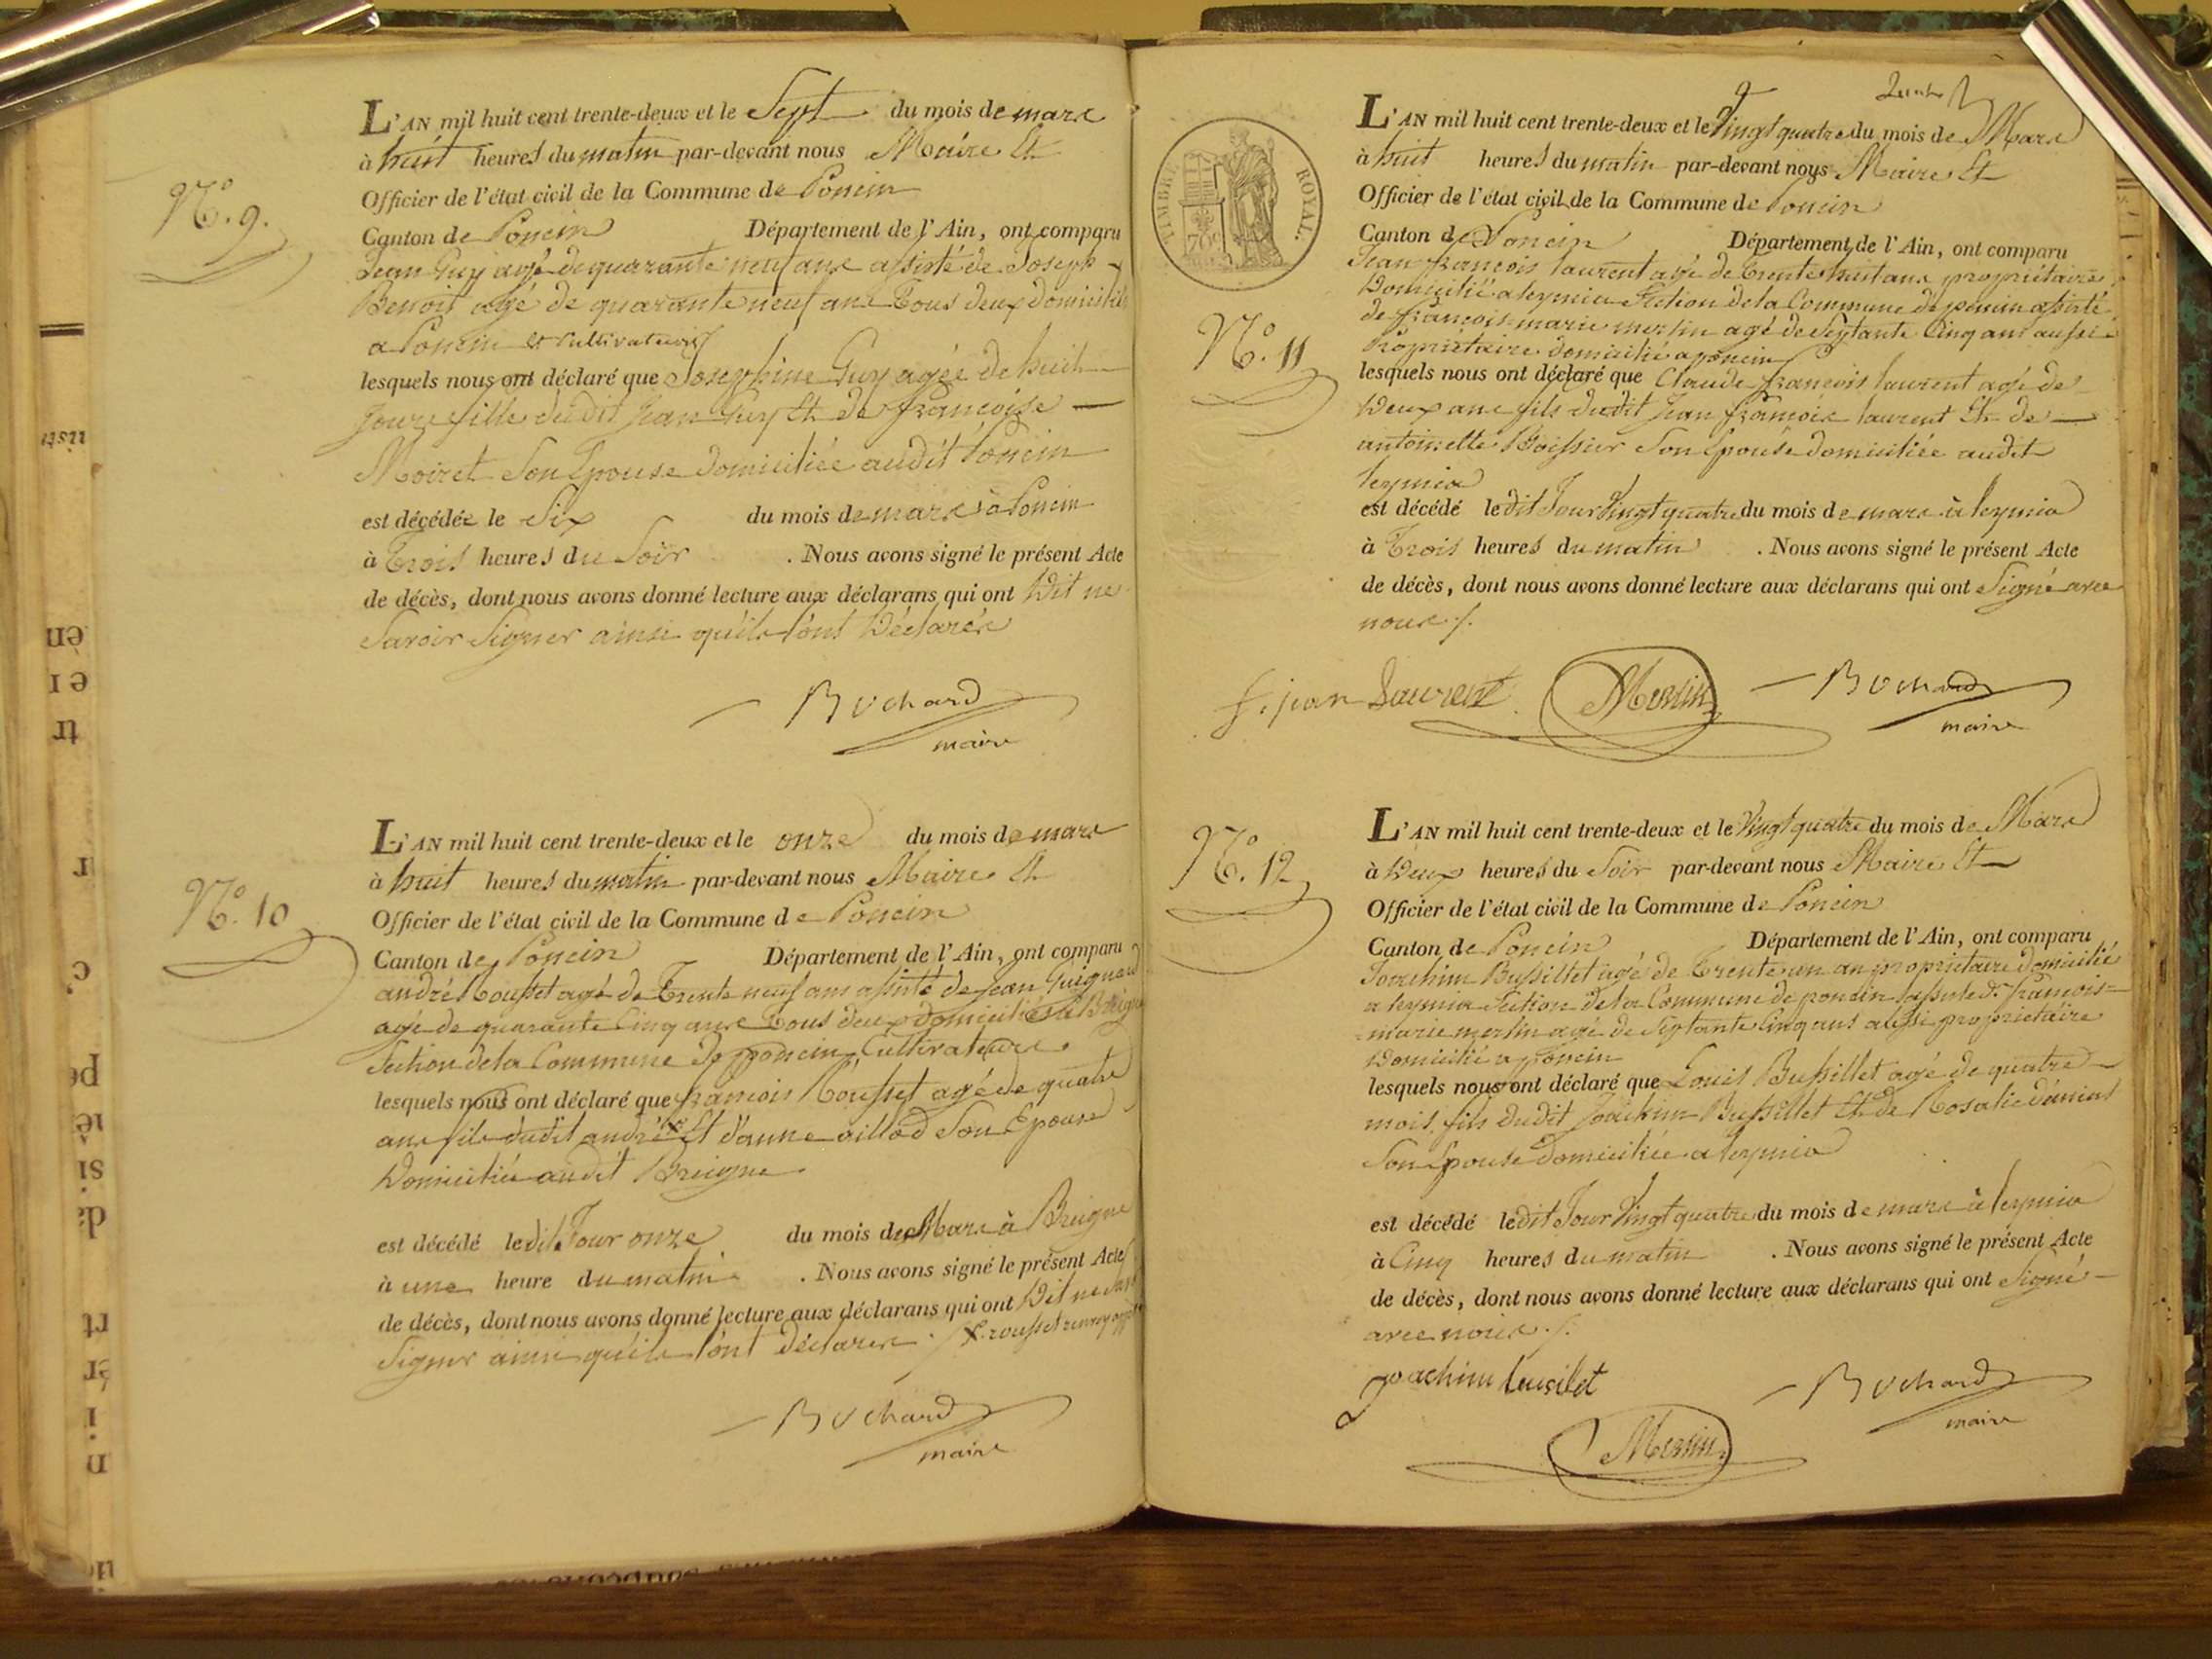 N.º 9.
L'AN mil huit cent trente-deux et le Sept du mois de mars
à huit heures du matin par-devant nous Maire Et
Officier de l'état civil de la Commune de Poncin
Canton de Poncin Département de l'Ain, ont comparu
Jean Guy agé de quarante neuf ans assisté de Joseph
Benoit agé de quarante neuf ans Tous deux domiciliés
a Poncin et cultivateurs
lesquels nous ont déclaré que Josephine Guy agée de huit
Jours fille dudit Jean Guy Et de françoise
Moiret Son Epouse domiciliée audit Poncin
est décédée le Six du mois de mars à Poncin
à Trois heures du Soir . Nous avons signé le présent Acte
de décès, dont nous avons donné lecture aux déclarans qui ont Dit ne
Savoir Signer ainsi qu'ils l'ont Déclarés
Bochard
maire
N.º 10
L'AN mil huit cent trente-deux et le onze du mois de mars
à huit heures du matin par-devant nous Maire Et
Officier de l'état civil de la Commune de Poncin
Canton de Poncin Département de l'Ain, ont comparu
andré Rousset agé de Trente neuf ans assisté de Jean Guignard
agé de quarante Cinq ans Tous deux domiciliés a Breigne
Section de la Commune de poncin Cultivateurs
lesquels nous ont déclaré que françois Rousset agé de quatre
ans fils dudit andré X Et d'anne aillod Son Epouse
Domiciliée audit Breigne
est décédé le dit Jour onze du mois de Mars à Breigne
à une heure du matin . Nous avons signé le présent Acte
de décès, dont nous avons donné lecture aux déclarans qui ont Dit ne
Signer ainsi qu'ils l'ont Déclarés ./. X. rousset renvoy
Bochard
maire
TIMBRE ROYAL.
N.º 11
L'AN mil huit cent trente-deux et le Vingt quatre du mois de Mars
à huit heures du matin par-devant nous Maire Et
Officier de l'état civil de la Commune de Poncin
Canton de Poncin Département de l'Ain, ont comparu
Jean françois laurent agé de Trente huit ans propriétaire
Domicilié a leymia Section de la Commune de poncin assisté
de françois marie merlin agé de Septante Cinq ans aussi
Propriétaire domicilié a poncin
lesquels nous ont déclaré que Claude françois laurent agé de
Deux ans fils dudit Jean françois laurent Et de
antoinette Boissier Son Epouse domiciliée audit
leymia
est décédé le dit Jour Vingt quatre du mois de mars à leymia
à Trois heures du matin . Nous avons signé le présent Acte
de décès, dont nous avons donné lecture aux déclarans qui ont Signé avec
nous ./.
f. jean Laurent Merlin Bochard
maire
N.º 12
L'AN mil huit cent trente-deux et le Vingt quatre du mois de Mars
à Deux heures du Soir par-devant nous Maire Et
Officier de l'état civil de la Commune de Poncin
Canton de Poncin Département de l'Ain, ont comparu
Joachim Bussillet agé de Trente un an propriétaire domicilié
a leymia Section de la Commune de poncin assisté de françois
marie merlin agé de Septante Cinq ans aussi propriétaire
Domicilié a poncin
lesquels nous ont déclaré que Louis Bussillet agé de quatre
mois, fils dudit Joachim Bussillet Et de Rosalie
Son Epouse domiciliée a leymia
est décédé le dit Jour Vingt quatre du mois de mars à leymia
à Cinq heures du matin . Nous avons signé le présent Acte
de décès, dont nous avons donné lecture aux déclarans qui ont Signé
avec nous ./.
Joachim Bochard
maire
Merlin